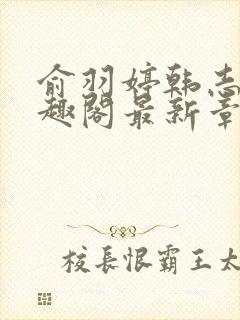 俞羽婷韩志
趣阁最新章
校長恨霸王太